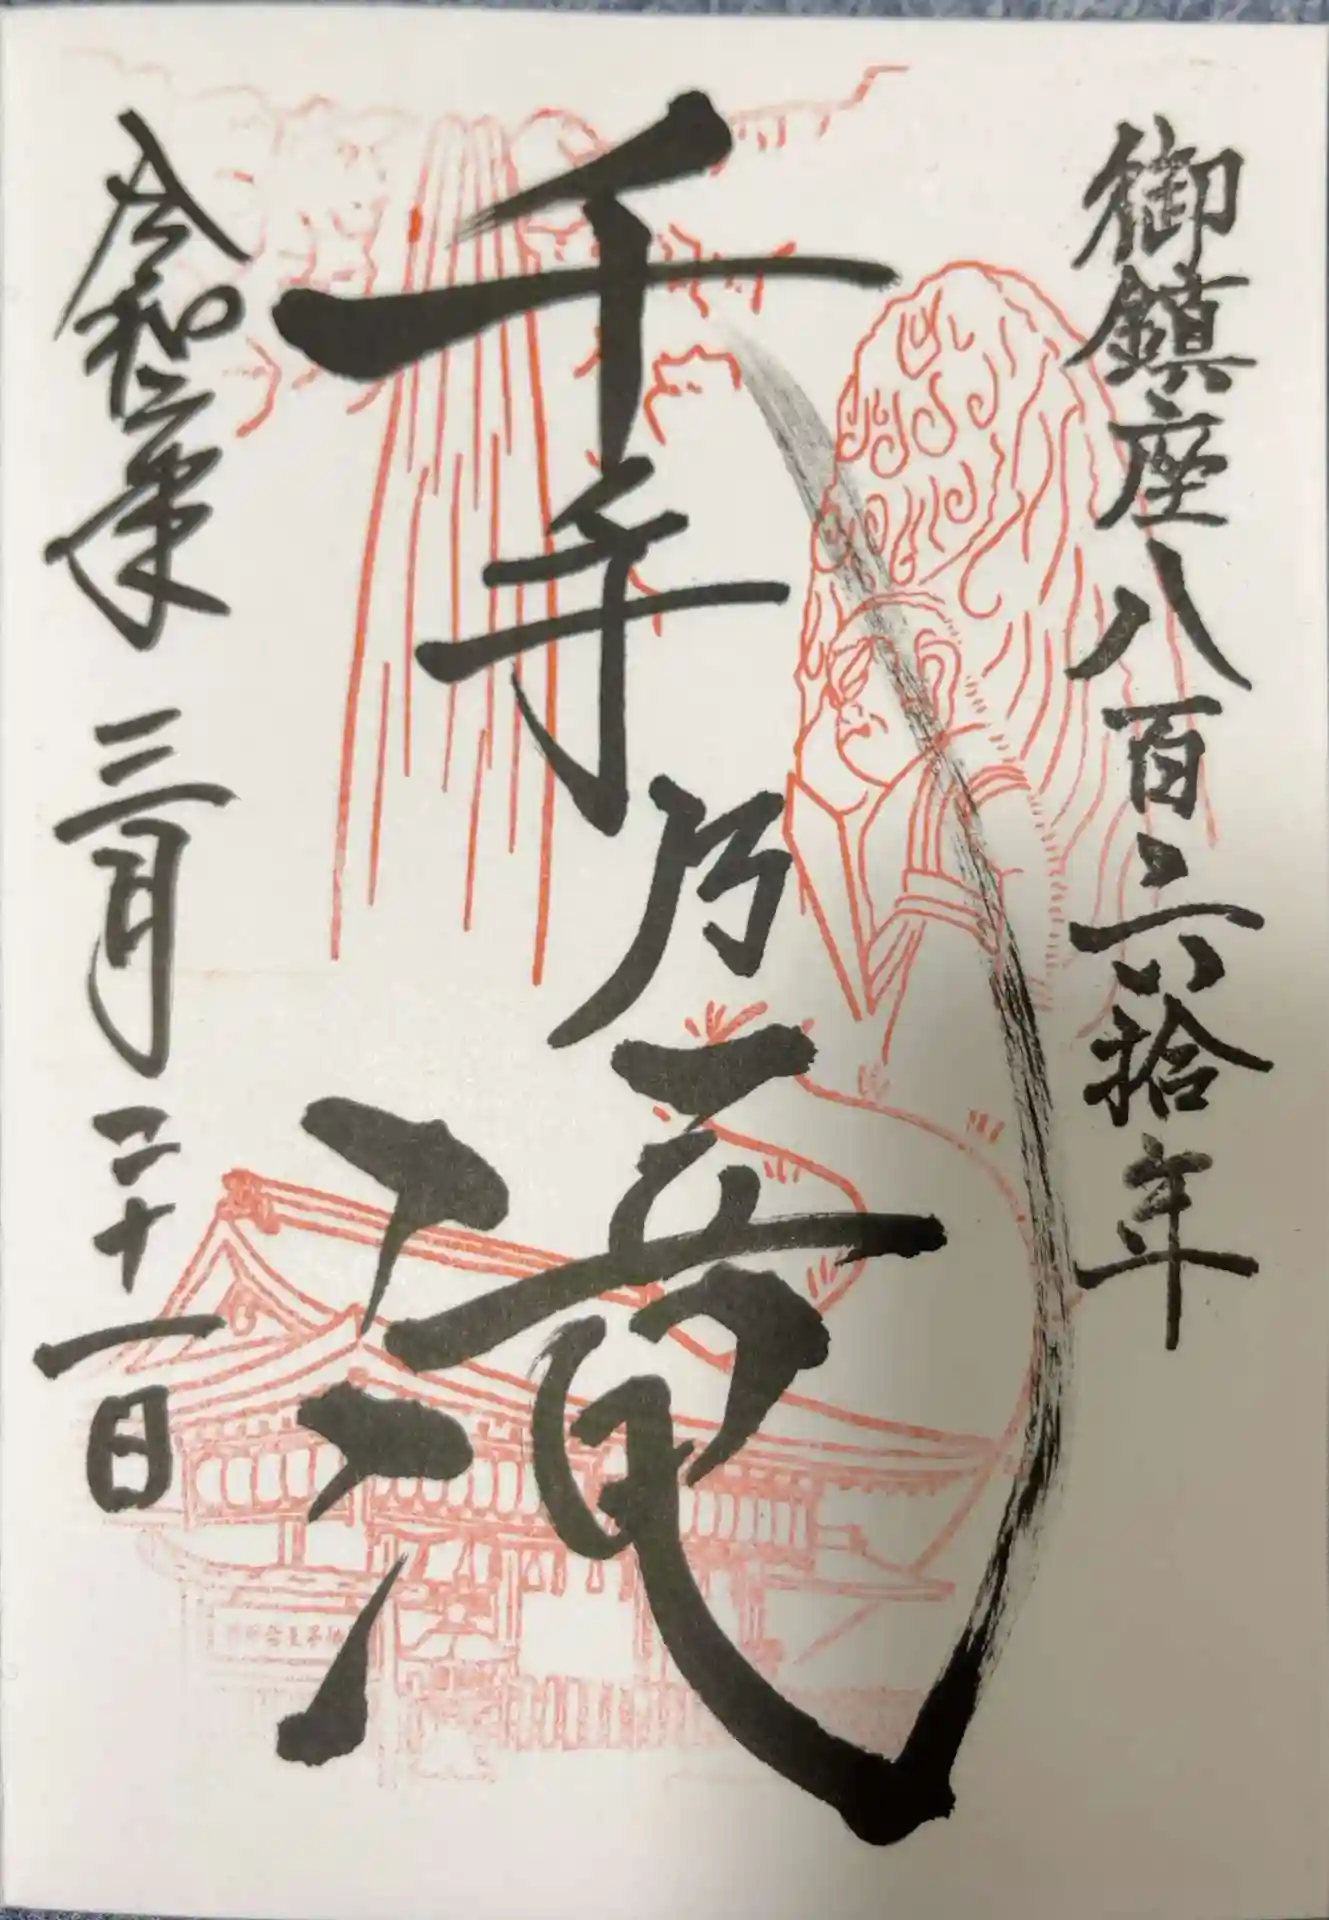 御鎮座八百六拾年
千手乃滝
令和二年 三月 二十一日